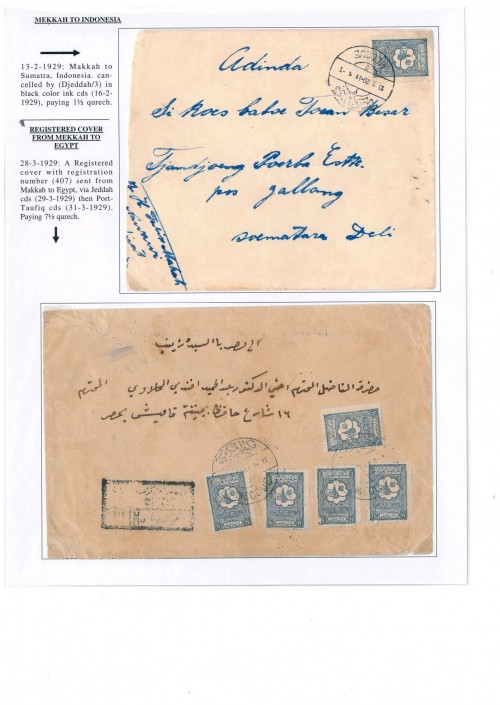 MEKKAH TO INDONESIA
13-2-1929: Makkah to
Sumatra, Indonesia. can-
celled by (Djeddah/3) in
black color ink cds (16-2-
1929), paying 1½ qurech.
REGISTERED COVER
FROM MEKKAH TO
EGYPT
28-3-1929: A Registered
cover with registration
number (407) sent from
Makkah to Egypt, via Jeddah
cds (29-3-1929) then Port-
Taufiq cds (31-3-1929).
Paying 7½ qurech.
Adinda
Si Koes baboe Toean Besar
Tjandjoeng Poerba Estk.
pos Gallang
Soematara Deli
الى مصر بالسيدة زينب
حضرة الفاضل المحترم اخي الدكتور عبد الحميد افندي الحلاوي المحترم
١٦ شارع حافظ بجنينة قاميش بمصر